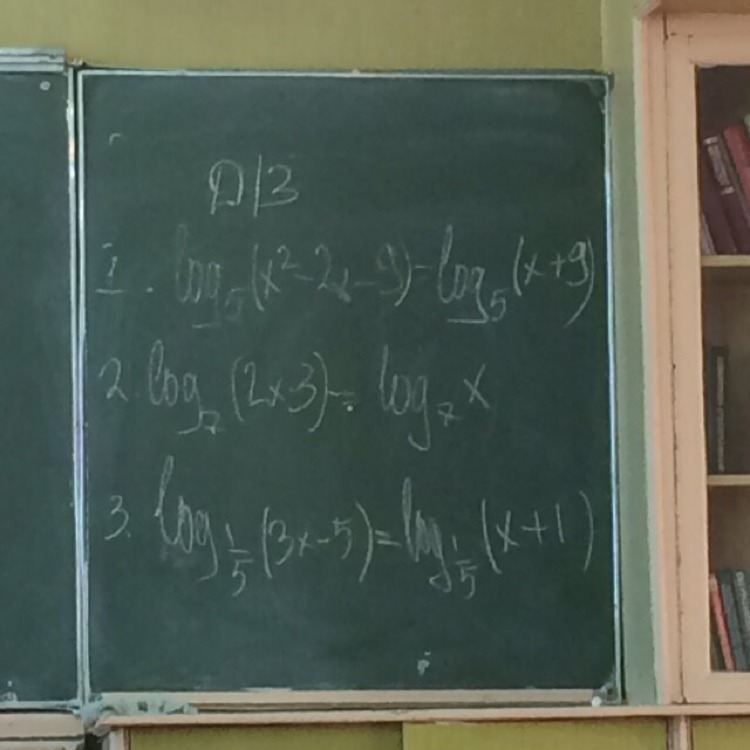 Д/З
1. log₅(x²-2x-9)=log₅(x+9)
2. log₇(2x3)= log₇x
3. log_{1/5}(3x-5)=log_{1/5}(x+1)